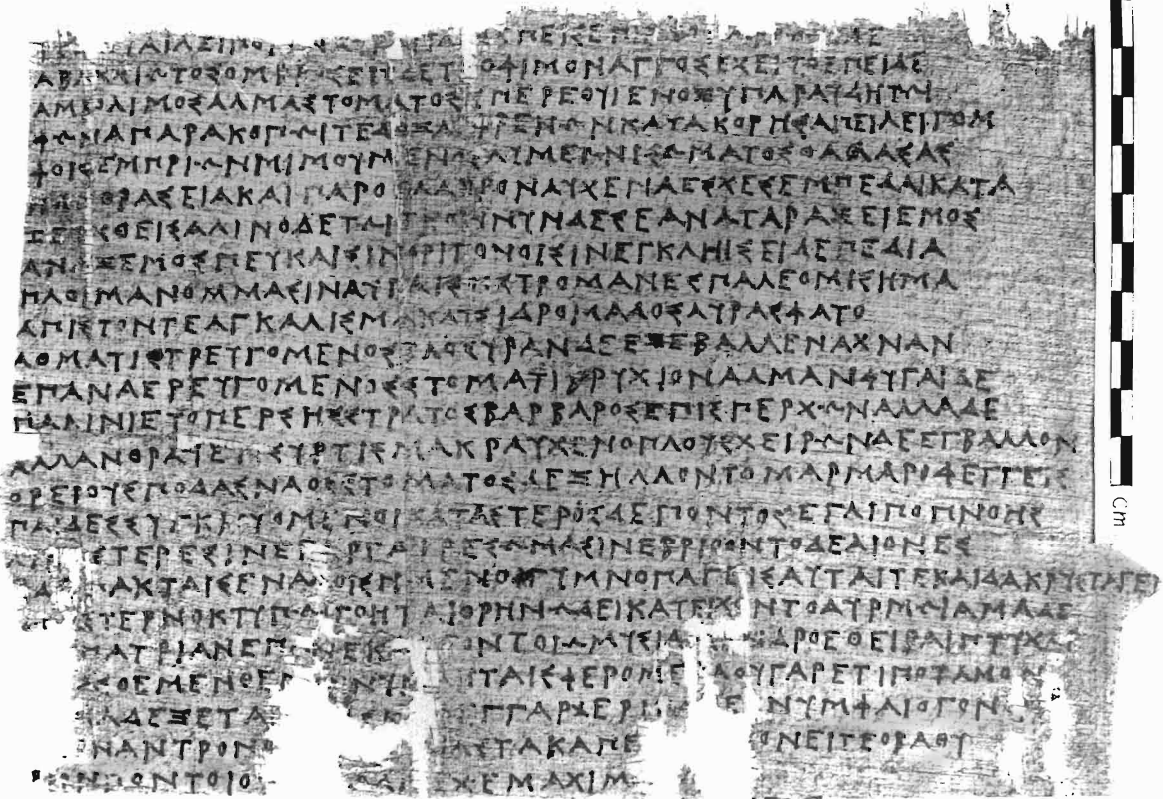 ΑΒΑΚΧΙΩΤΟΣΟΜΒΡΟΣΕΙΣΔΕΤΡΟΦΙΜΟΝΑΓΓΟΣΕΧΕΙΤΟΕΠΕΙΔΕ
ΑΜΒΟΛΙΜΟΣΑΛΜΑΣΤΟΜΑΤΟΣΥΠΕΡΕΘΥΙΕΝΟΞΥΠΑΡΑΥΔΗΤΩΙ
ΦΩΝΑΙΠΑΡΑΚΟΠΩΙΤΕΔΟΞΑΙΦΡΕΝΩΝΚΑΤΑΚΟΡΗΣΑΠΕΙΛΕΙΓΟΜ
ΦΟΙΣΕΜΠΡΙΩΝΜΙΜΟΥΜΕΝΟΣΛΥΜΕΩΝΙΣΩΜΑΤΟΣΘΑΛΑΣΑΣ
ΗΔΗΘΡΑΣΕΙΑΚΑΙΠΑΡΟΣΛΑΒΡΟΝΑΥΧΕΝΑΕΣΧΕΣΕΜΠΕΔΑΙΚΑΤΑ
ΖΕΥΧΘΕΙΣΑΛΙΝΟΔΕΤΩΙΤΕΟΝΝΥΝΔΕΣΕΑΝΑΤΑΡΑΞΕΙΕΜΟΣ
ΑΝΑΞΕΜΟΣΠΕΥΚΑΙΣΙΝΟΡΙΓΟΝΟΙΣΙΝΕΓΚΛΗΙΣΕΙΔΕΠΕΔΙΑ
ΠΛΟΙΜΑΝΟΜΜΑΣΙΝΑΥΓΑΙΣΟΙΣΤΡΟΜΑΝΕΣΠΑΛΕΟΜΙΣΗΜΑ
ΑΠΙΣΤΟΝΤΕΑΓΚΑΛΙΣΜΑΚΛΥΣΙΔΡΟΜΑΔΟΣΑΥΡΑΣΦΑΤΟ
ΑΘΜΑΤΙΣΤΡΕΥΓΟΜΕΝΟΣΒΛΟΣΥΡΑΝΔΕΕΞΕΒΑΛΛΕΝΑΧΝΑΝ
ΕΠΑΝΑΕΡΕΥΓΟΜΕΝΟΣΣΤΟΜΑΤΙΒΡΥΧΙΟΝΑΛΜΑΝΦΥΓΑΙΔΕ
ΠΑΛΙΝΙΕΤΟΠΕΡΣΗΣΣΤΡΑΤΟΣΒΑΡΒΑΡΟΣΕΠΙΣΠΕΡΧΩΝΑΛΛΑΔΕ
ΑΛΛΑΝΘΡΑΥΕΝΣΥΡΤΙΣΜΑΚΡΑΥΧΕΝΟΠΛΟΥΣΧΕΙΡΩΝΔΕΕΓΒΑΛΛΟΝ
ΟΡΕΙΟΥΣΠΟΔΑΣΝΑΟΣΣΤΟΜΑΤΟΣΔΕΞΗΛΛΟΝΤΟΜΑΡΜΑΡΟΦΕΓΓΕΙΣ
ΠΑΙΔΕΣΣΥΓΚΡΟΥΟΜΕΝΟΙΚΑΤΑΣΤΕΡΟΣΔΕΠΟΝΤΟΣΕΓΛΙΠΟΠΝΟΗΣ
ΣΤΕΡΕΣΙΝΕΓΑΡΓΑΙΡΕΣΩΜΑΣΙΝΕΒΡΙΘΟΝΤΟΔΕΑΙΟΝΕΣ
ΑΚΤΑΙΣΕΝΑΛΟΙΣΗΜΕΝΟΙΓΥΜΝΟΠΑΓΕΙΣΑΥΤΑΙΤΕΚΑΙΔΑΚΡΥΣΤΑΓΕΙ
ΣΤΕΡΝΟΚΤΥΠΩΙΓΟΗΤΑΙΘΡΗΝΩΔΕΙΚΑΤΕΙΧΟΝΤΟΔΥΡΜΩΙΑΜΑΔΕ
ΠΑΤΡΙΑΝΕΠΑΝΕΚΑ ΟΝΤΟΙΩΜΥΣΙΑΙ ΔΡΟΕΘΕΙΡΑΙΠΤΥΧΑΙ
ΣΘΕΜΕΝΘΕΝ ΝΥΝ ΗΤΑΙΣΦΕΡΟΜΕΘΑΟΥΓΑΡΕΤΙΠΟΤΑΜΟΝ
ΔΕΞΕΤΑ Κ ΓΓΑΡΧΕΡΙ Ε ΝΥΜΦΑΙΟΓΟΝ
ΝΑΝΤΡΟΝΟ ΣΤΑΚΑΠΕ ΟΝΕΙΤΕΟΒΑΘΥ
ΠΟΝΤΟΙΟ ΧΕΜΑΧΙΜ